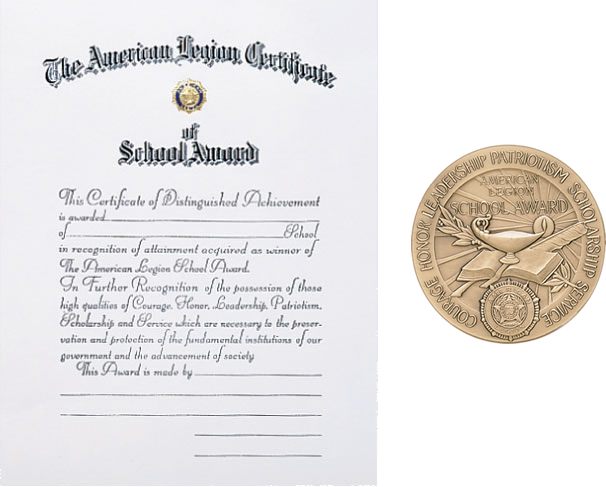 The American Legion Certificate
of
School Award
This Certificate of Distinguished Achievement
is awarded
of School
in recognition of attainment acquired as winner of
The American Legion School Award.
In Further Recognition of the possession of those
high qualities of Courage, Honor, Leadership, Patriotism,
Scholarship and Service which are necessary to the preser-
vation and protection of the fundamental institutions of our
government and the advancement of society
This Award is made by
COURAGE HONOR LEADERSHIP PATRIOTISM SCHOLARSHIP SERVICE
AMERICAN
LEGION
SCHOOL AWARD